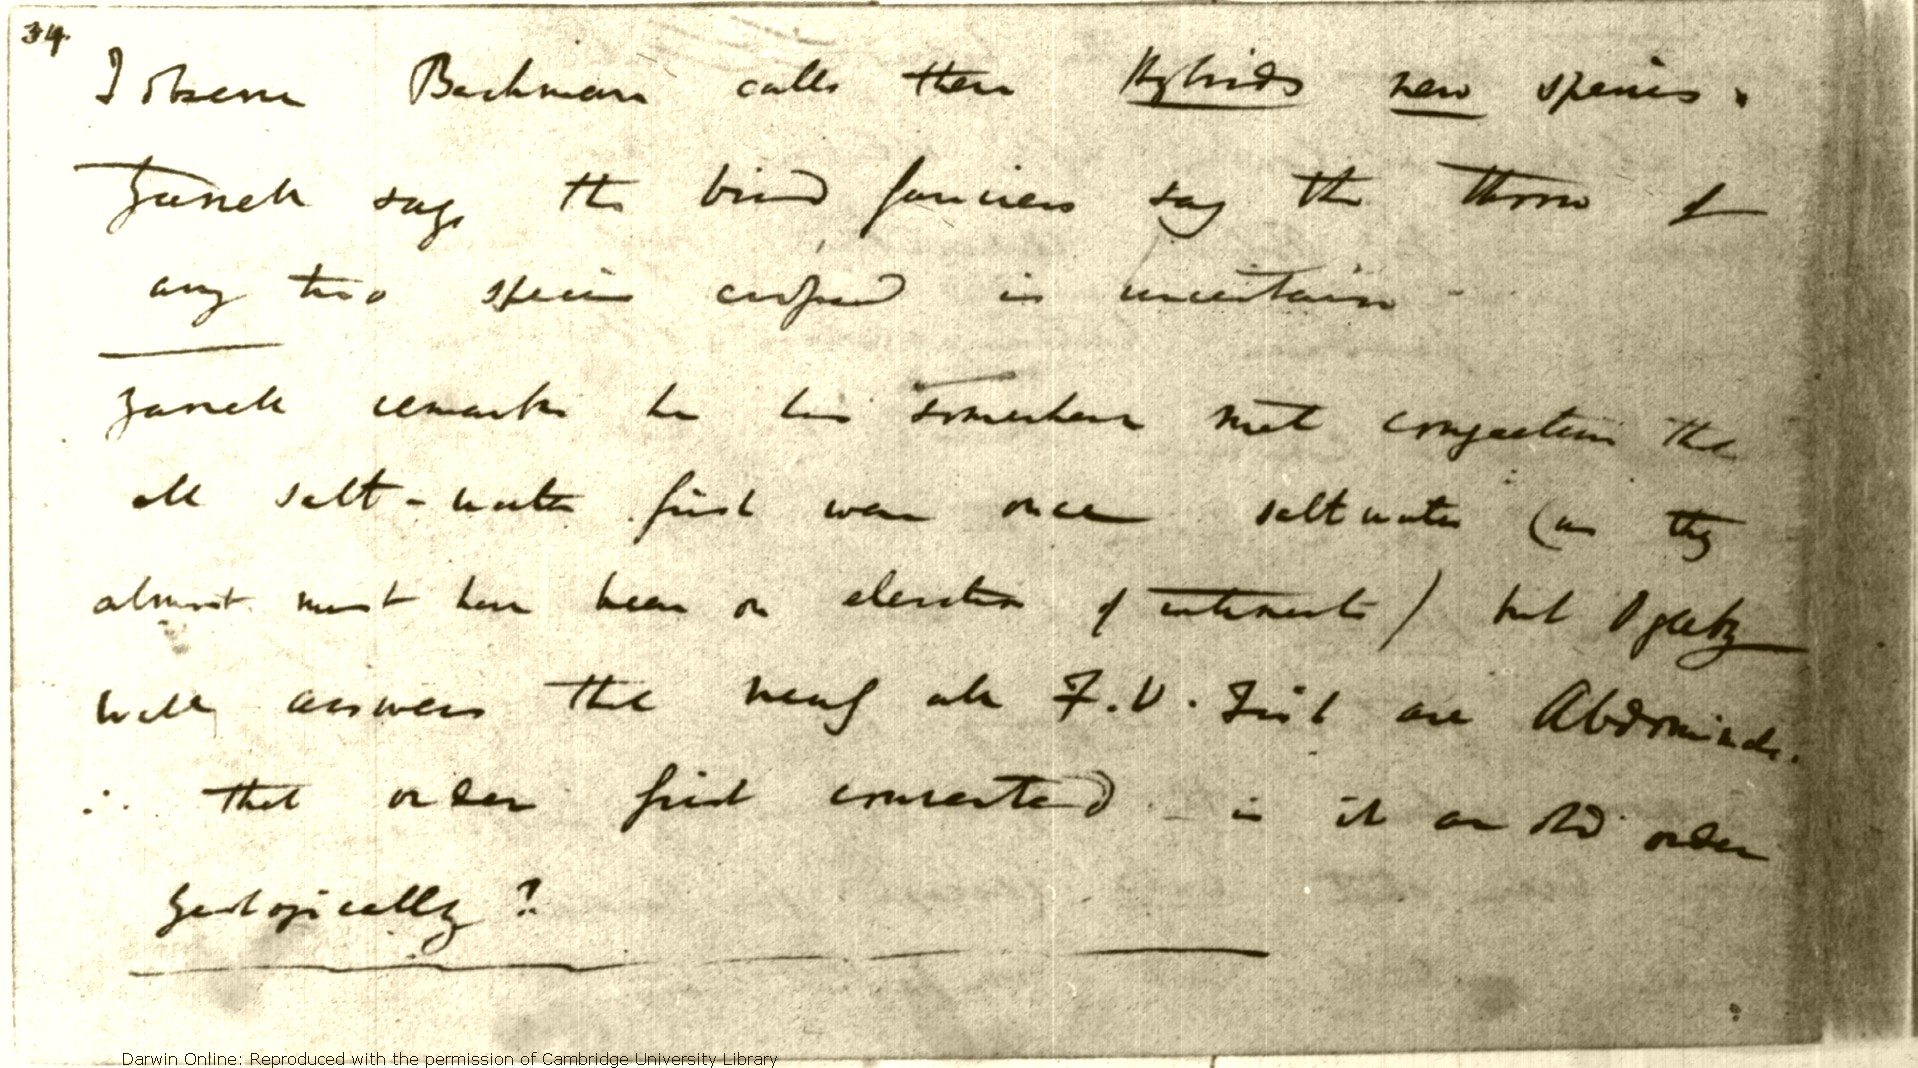 34.
I observe Bachman calls these Hybrids new species.
Yarrell says the bird fanciers say the throw of
any two species crossed is uncertain -
Yarrell remarks he has somewhere met conjecture that
all salt-water fish were once salt water (as they
almost must have been on elevation of continents) but Ogleby
well answers that nearly all F.W. Fish are Abdominals.
∴ that order first converted - is it an old order
Geologically?
Darwin Online: Reproduced with the permission of Cambridge University Library